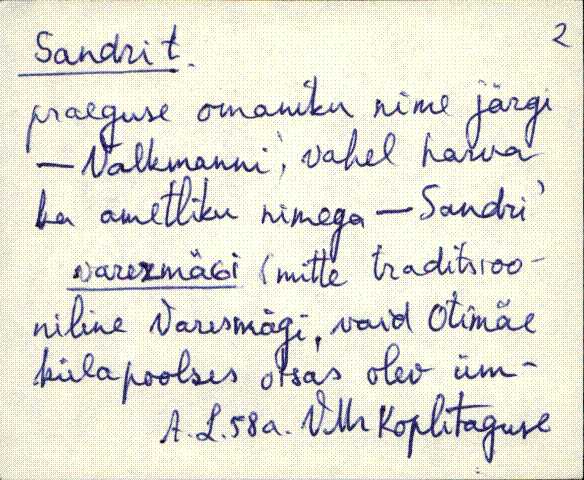 2
Sandri t.
praeguse omaniku nime järgi
— Valkmanni', vahel harva
ka ametliku nimega — Sandri'
varezmäGi (mitte traditsioo-
niline Varesmägi, vaid Otimäe
külapoolses otsas olev üm-
A. L. 58a. VMr Koplitaguse